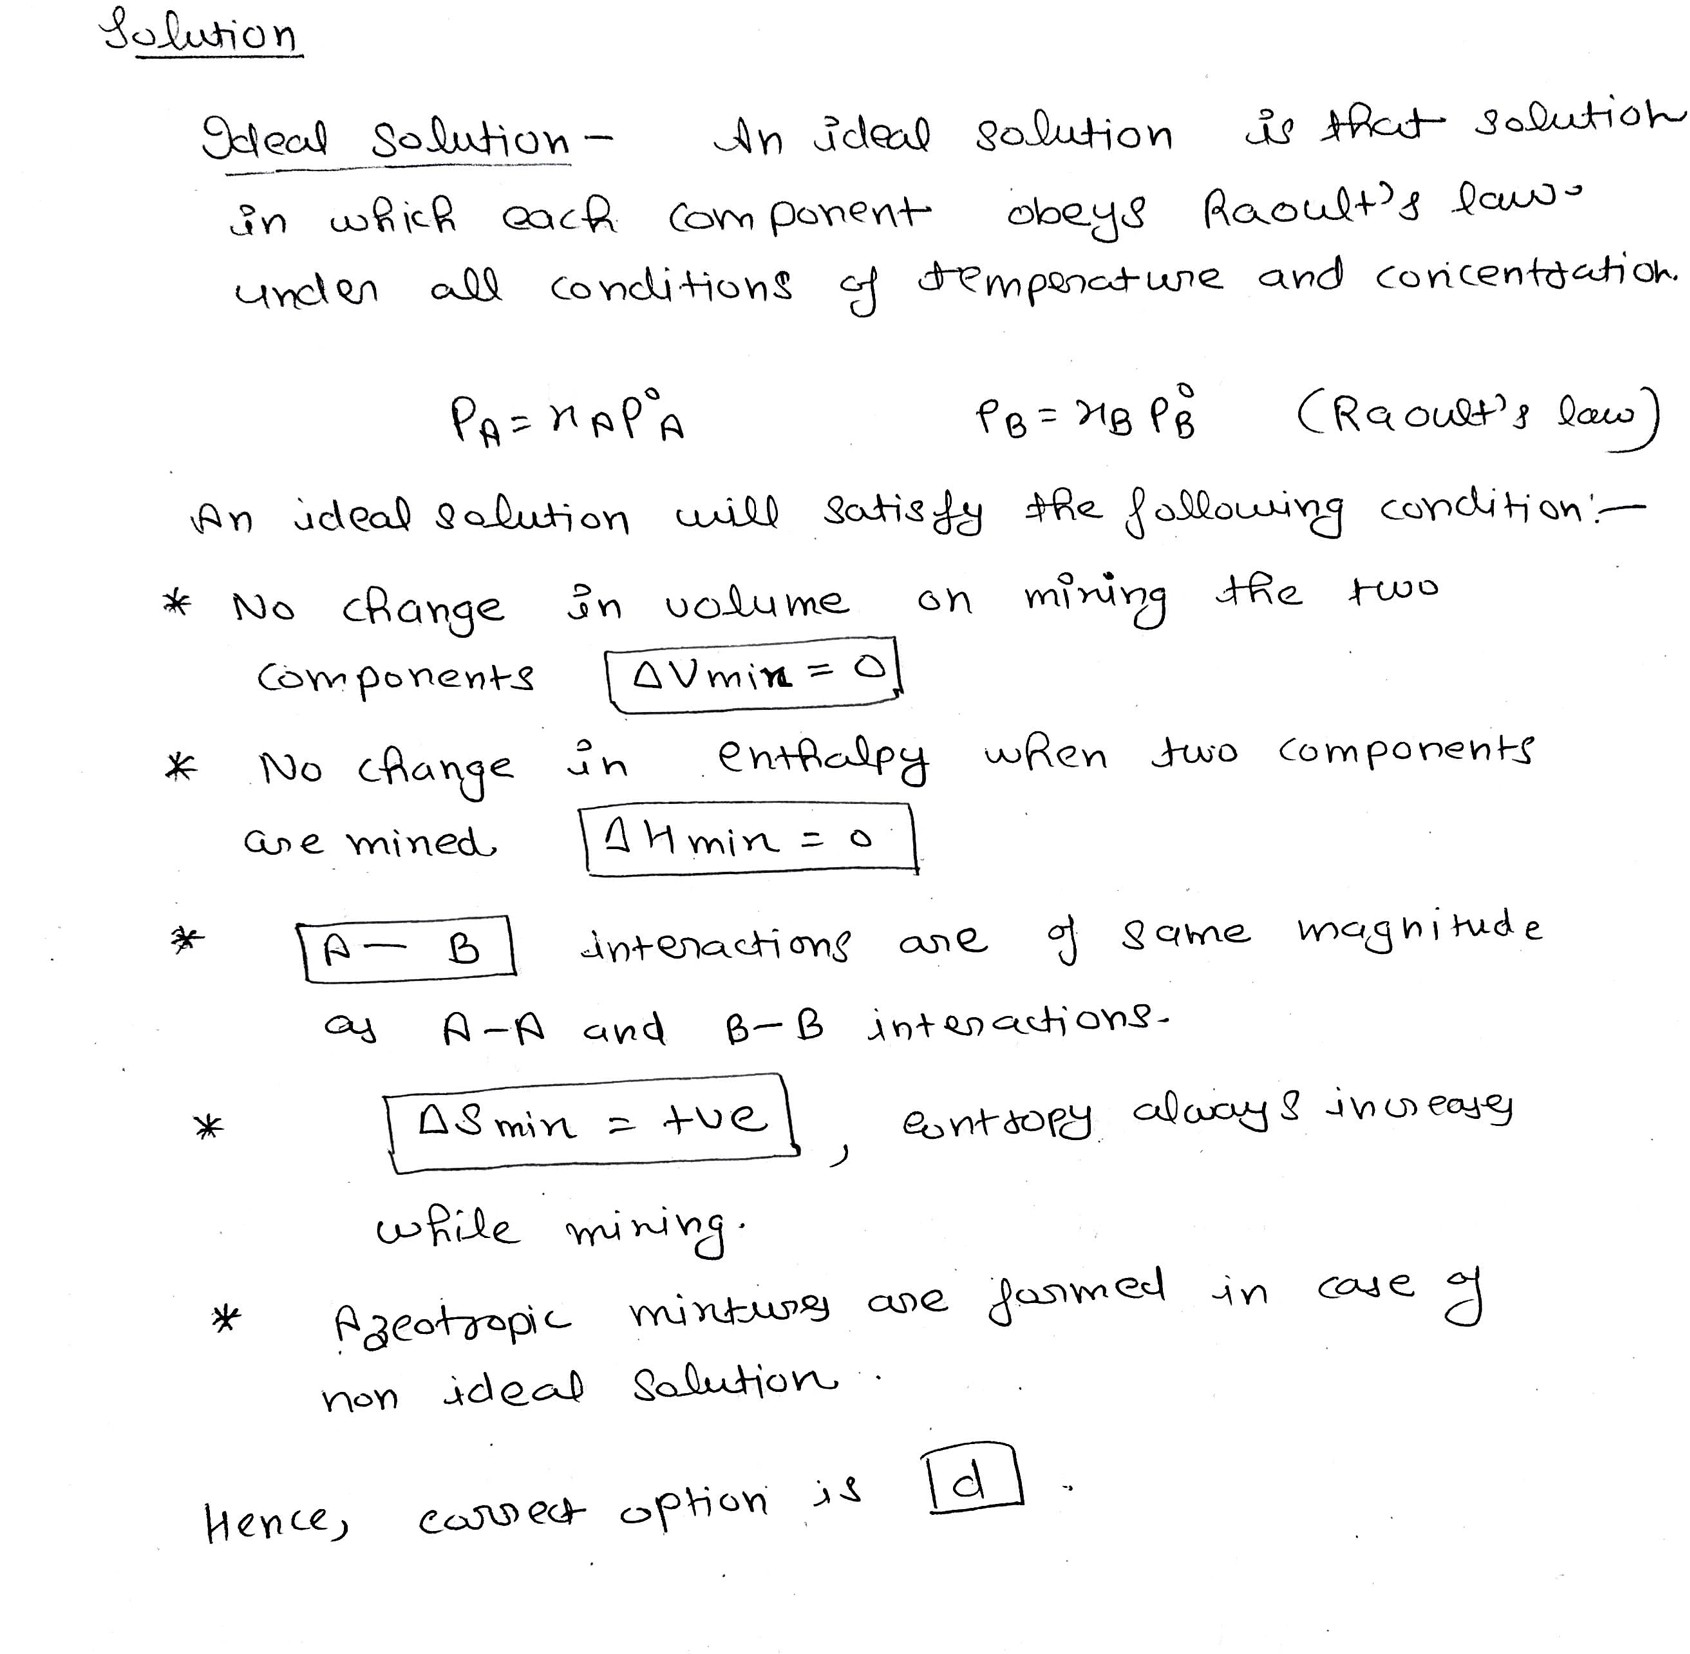 Solution
Ideal solution - An ideal solution is that solution
in which each component obeys Raoult's law
under all conditions of temperature and concentration.
P_A = x_A P°_A P_B = x_B P°_B (Raoult's law)
An ideal solution will satisfy the following condition:-
* No change in volume on mixing the two
components ΔVmix = 0
* No change in enthalpy when two components
are mixed ΔHmix = 0
* A - B interactions are of same magnitude
as A-A and B-B interactions.
* ΔSmix = +ve , entropy always increases
while mixing.
* Azeotropic mixtures are formed in case of
non ideal solution.
Hence, correct option is d .